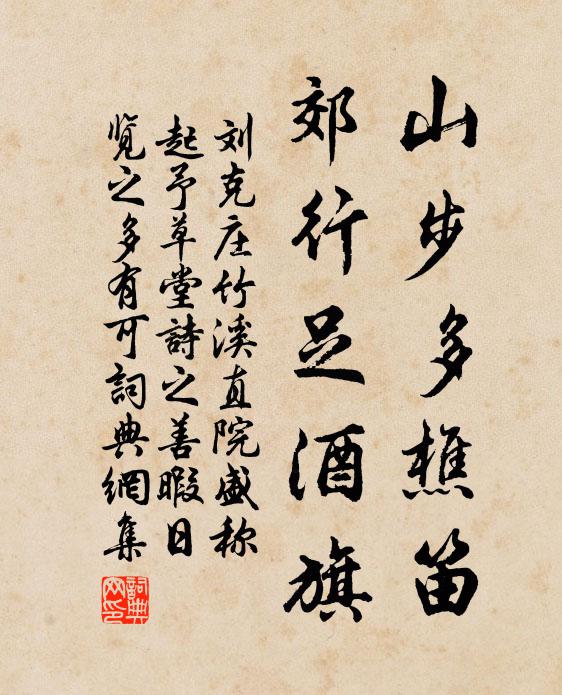 山步多樵笛
郊行足酒旗
刘克庄竹溪直院盛称
起予草堂詩之善暇日
览之多有可詞典網集
詞典
网印